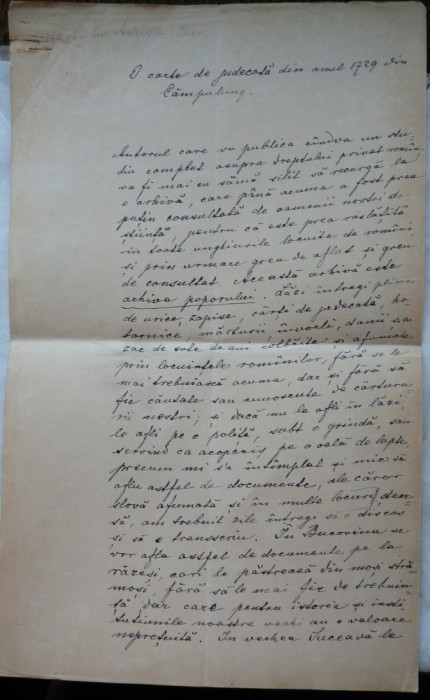 O carte de judecată din anul 1729 din
Câmpulung.
Autorul care va publica cîndva un stu-
diu complet asupra dreptului privat român
va fi mai cu sămă silit să recurgă la
o arhivă, care pînă acuma a fost prea
puțin consultată de oamenii noștri de
știință, pentru că este prea răslățită
în toate unghiurile locuite de români,
și prin urmare greu de aflat și greu
de consultat. Această arhivă este
arhiva poporului. Lăzi întregi pline
de urice, zapise, cărți de judecată, ho-
tarnice, mărturii, învoeli, danii ș.a.
zac de sute de ani colbăite și afumate
prin locuințele românilor, fără se le
mai trebuiască acuma, dar și fără să
fie căutate sau cunoscute de cărtura-
rii noștri; și dacă nu le afli în lăzi,
le afli pe o poliță, subt o grindă, sau
servind ca acoperiș pe o oală de lapte,
precum mi s'a întîmplat și mie să
aflu astfel de documente, ale căror
slovă afumată și în multe locuri stear-
să, am trebuit zile întregi s'o descos
și să o transscriu. În Bucovina se
vor afla astfel de documente pe la
răzeși, cari le păstrează din moși stră-
moși, fără să le mai fie de trebuin-
ță, dar care pentru istorie și insti-
tuțiunile noastre vechi au o valoare
neprețuită. In vechea Suceavă le